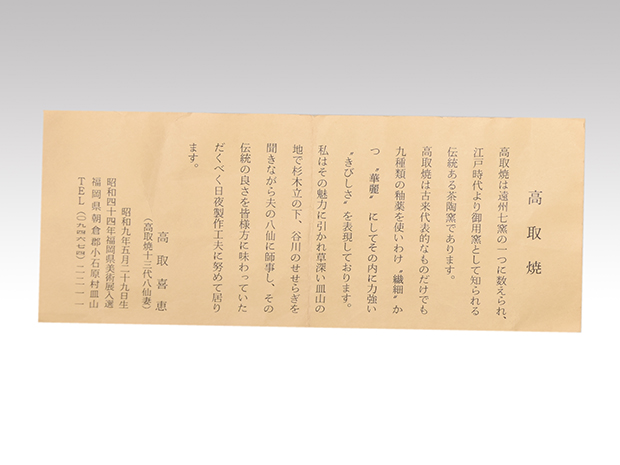 高取焼
高取焼は遠州七窯の一つに数えられ、
江戸時代より御用窯として知られる
伝統ある茶陶窯であります。
高取焼は古来代表的なものだけでも
九種類の釉薬を使いわけ〝繊細〟か
つ〝華麗〟にしてその内に力強い
〝きびしさ〟を表現しております。
私はその魅力に引かれ草深い皿山の
地で杉木立の下、谷川のせせらぎを
聞きながら夫の八仙に師事し、その
伝統の良さを皆様方に味わっていた
だくべく日夜製作工夫に努めて居り
ます。
高取喜恵
(高取焼十三代八仙妻)
昭和九年五月二十九日生
昭和四十四年福岡県美術展入選
福岡県朝倉郡小石原村皿山
TEL